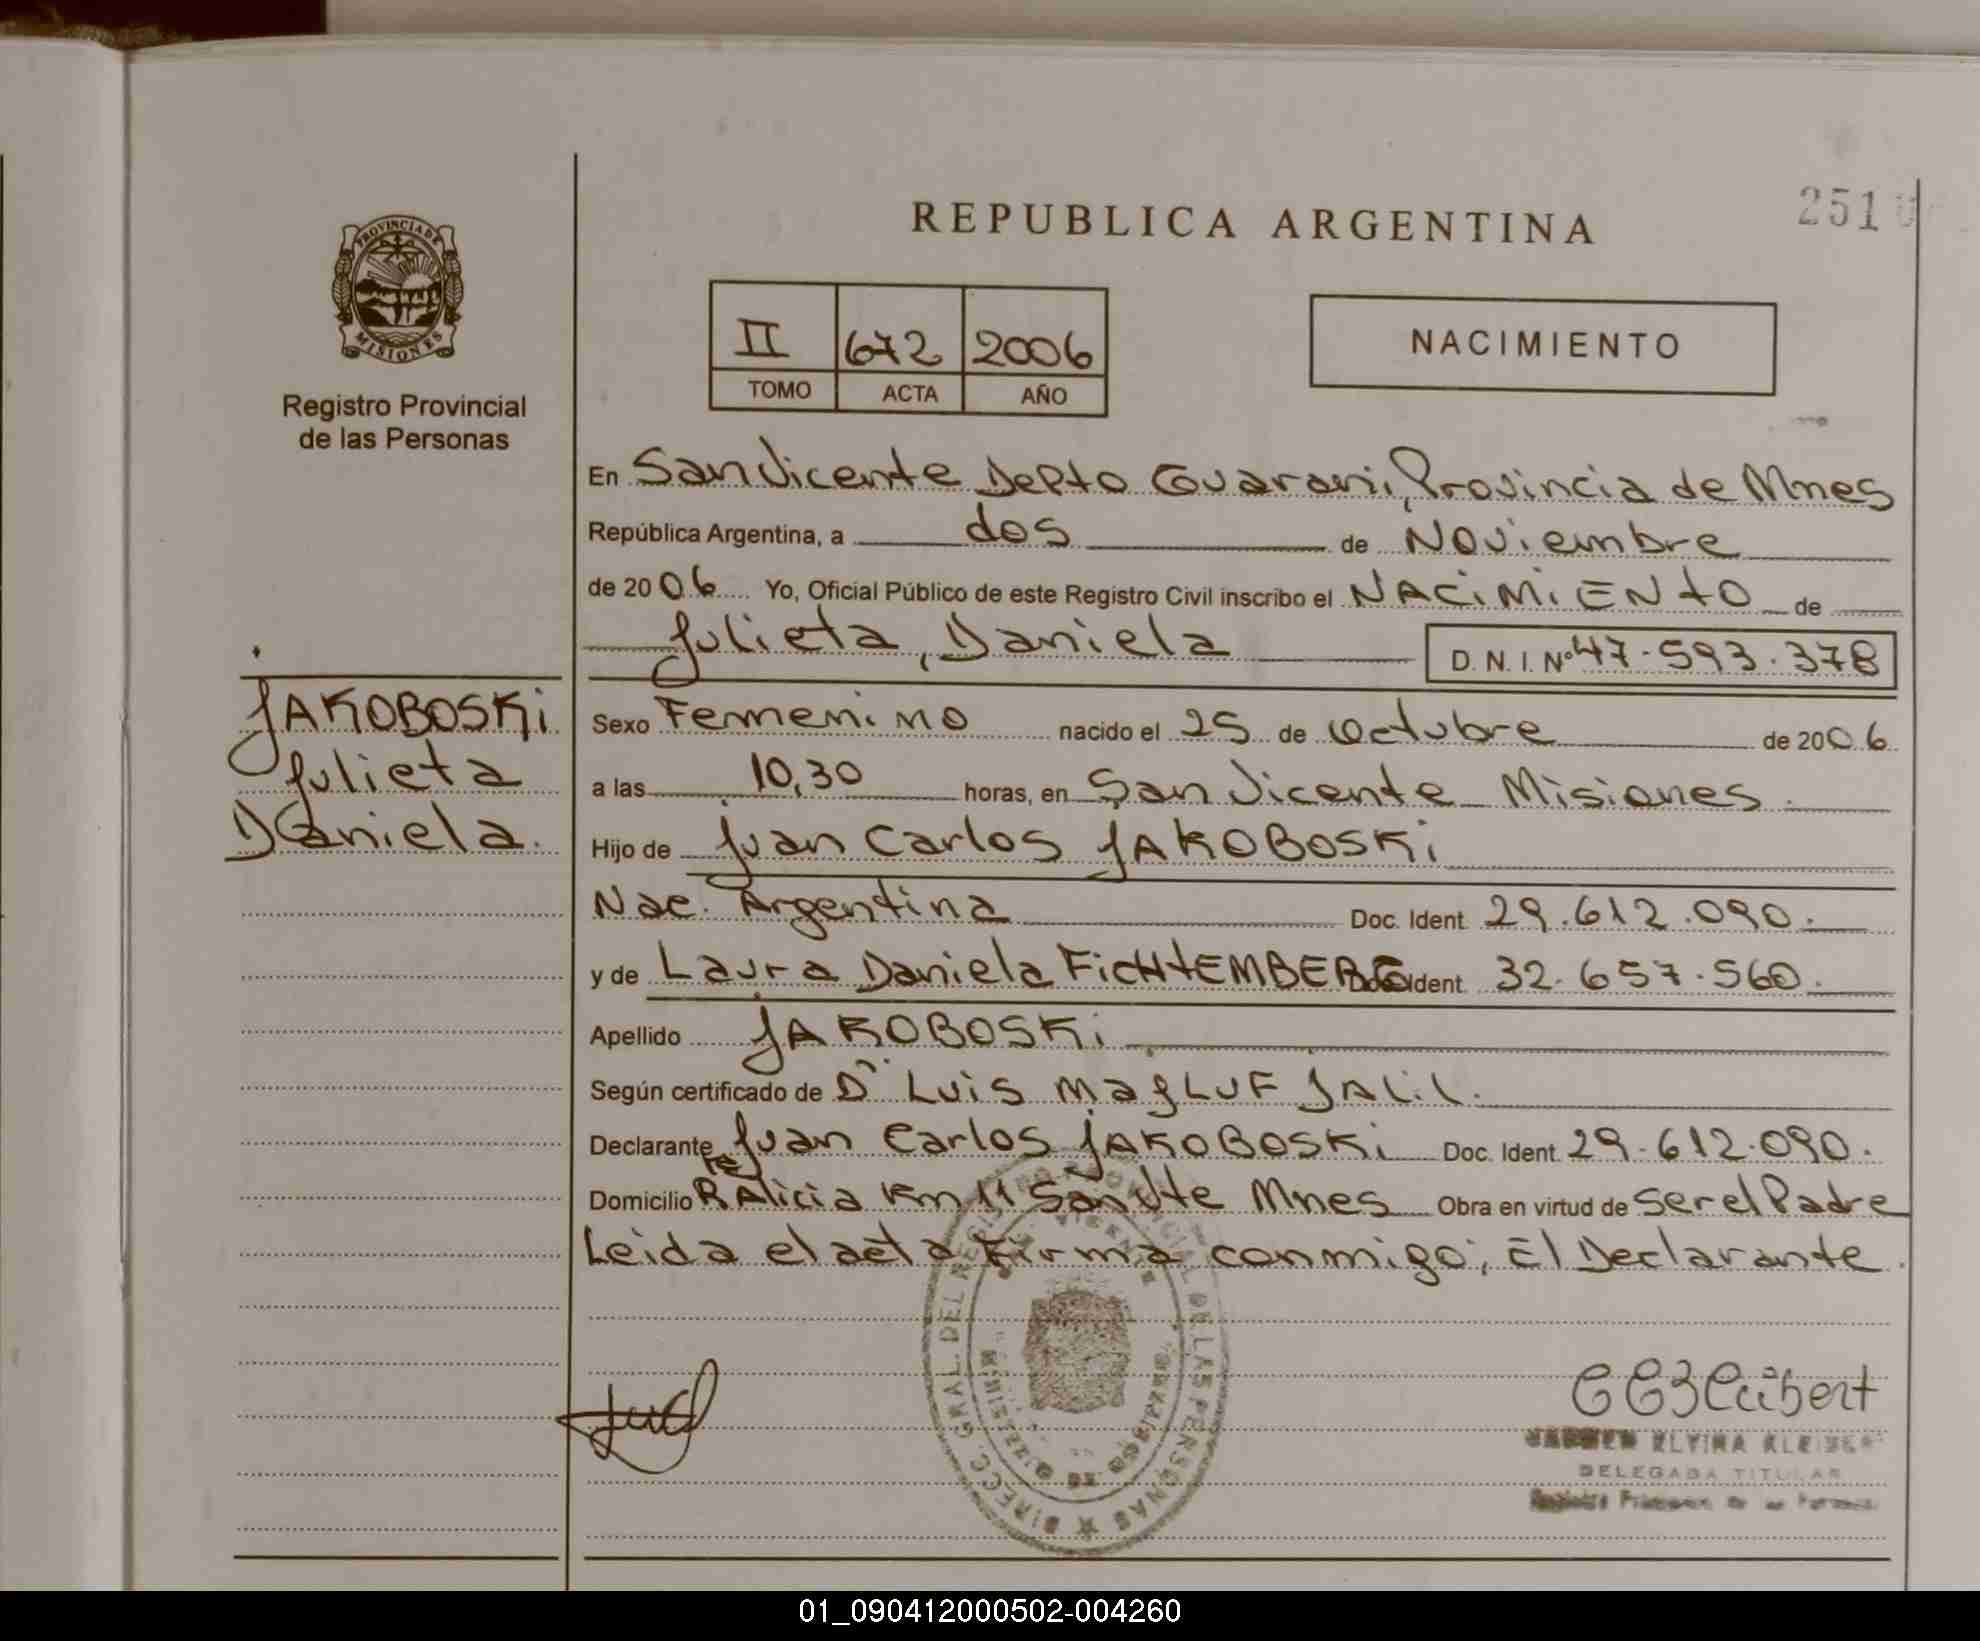 REPUBLICA ARGENTINA
251
PROVINCIA DE
MISIONES
Registro Provincial
de las Personas
II 672 2006
TOMO ACTA AÑO
NACIMIENTO
En San Vicente Depto Guarani, Provincia de Mnes
República Argentina, a dos de Noviembre
de 2006 Yo, Oficial Público de este Registro Civil inscribo el NACiMiENtO de
Julieta, Daniela D. N. I. Nº 47.593.378
JAKOBOSKi
Julieta
Daniela.
Sexo Femenino nacido el 25 de Octubre de 2006
a las 10,30 horas, en San Vicente Misiones.
Hijo de Juan Carlos JAKOBOSKi
Nac. Argentina Doc. Ident. 29.612.090.
y de Laura Daniela FiCHtEMBERG Doc. Ident. 32.657.560.
Apellido JAKOBOSKi
Según certificado de Dr Luis MagLUF JALiL.
Declarante Juan Carlos JAKOBOSKi Doc. Ident. 29.612.090.
Domicilio Pje R Alicia Km 11 San Vte Mnes Obra en virtud de ser el Padre
Leida el acta Firma conmigo; El Declarante.
DIRECC. GRAL. DEL REGISTRO PROVINCIAL DE LAS PERSONAS
ELVINA
DELEGADA TITULAR
01_090412000502-004260